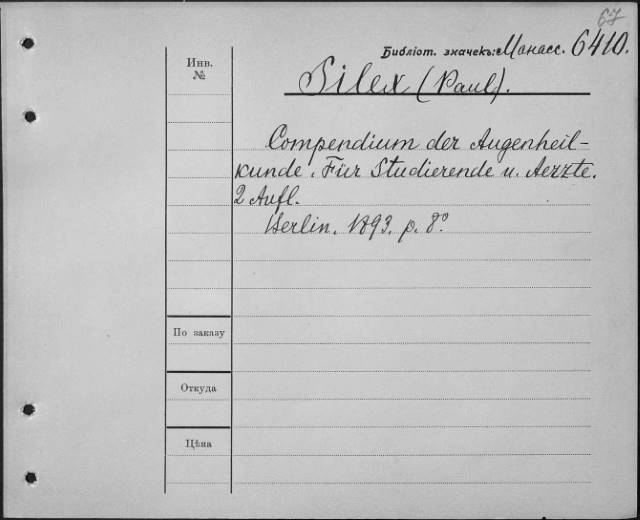 67
Инв.
№
Библіот. значекъ: Манасс. 6410.
Silex (Paul).
Compendium der Augenheil-
kunde. Für Studierende u. Aerzte.
2 Aufl.
Berlin. 1893. p. 8º.
По заказу
Откуда
Цѣна